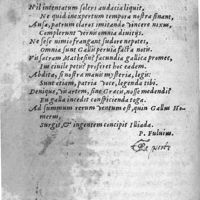 Nil intentatum solers audacia liquit,
Ne quid inexpertum tempora nostra sinant,
Ausa, patrum claros imitando vincere nixus,
Complerunt varijs omnia divitijs.
Ne sese nimio frangant sudore nepotes,
Omnia sunt Gallis pervia facta novis.
Vis patriam Mathesin? facundia gallica promet,
Ius civile petis? proferet hoc eadem.
Abdita, si nostra manu mysteria, legis:
Sunt etiam, patria voce, legenda tibi.
Denique, vis artem, sine Graecis, nosse medendi?
En gallis incedit conspicienda toga.
Ad summum rerum ventum est, quin Gallus Homerum,
Surgis, & ingentem concipit Iliada.
P. Fulvius.